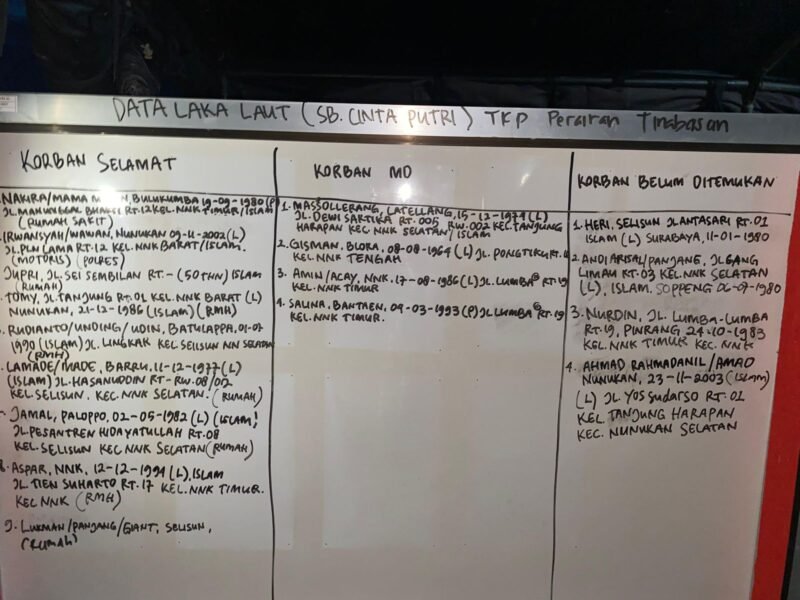 DATA LAKA LAUT (SB. CINTA PUTRI) TKP Perairan Tinabasan
KORBAN SELAMAT
NAKIRA/MAMA BULUKUMBA 19-09-1980 (P)
RT.12 KEL.NNK TIMUR/ISLAM
(RUMAH SAKIT)
IRWANSYAH/WAWAN, NUNUKAN 09-11-2002 (L)
JL.PLN LAMA RT.12 KEL.NNK BARAT/ISLAM.
(MOTORIS) (POLRES)
JUPRI, JL.SEI SEMBILAN RT.- (50 THN) ISLAM
(RUMAH)
TOMY, JL.TANJUNG RT.01 KEL.NNK BARAT (L)
NUNUKAN, 21-12-1986 (ISLAM) (RMH)
RUDIANTO/UNDING/UDIN, BATULAPPA, 01-07
1990 (ISLAM) JL. LINGKAK KEL.SELISUN NN SELATAN
(RMH)
LAMADE/MADE, BARRU, 11-12-1977 (L)
(ISLAM) JL.HASANUDDIN RT- RW.08/02
KEL.SELISUN. KEC.NNK SELATAN. (RUMAH)
JAMAL, PALOPPO, 02-05-1982 (L) (ISLAM)
JL.PESANTREN HIDAYATULLAH RT.08
KEL.SELISUN KEC NNK SELATAN (RUMAH)
8. ASPAR, NNK, 12-12-1991 (L), ISLAM
JL.TIEN SUHARTO RT.17 KEL.NNK TIMUR.
KEC NNK (RMH)
9. LUKMAN/PANJANG/GIANT, SELISUN,
(RUMAH)
KORBAN MD
1. MASSOLLERANG, LATELLANG, 15-12-1974 (L)
JL. DEWI SARTIKA RT.005 RW.002 KEC.TANJUNG
HARAPAN KEC NNK SELATAN/ISLAM
2. GISMAN, BLORA, 08-08-1964 (L) JL. PONGTIKURT.11
KEL.NNK TENGAH
3. AMIN/ACAY, NNK, 17-08-1986 (L) JL. LUMBA² RT.19
KEL.NNK TIMUR
4. SALINA, BANTAEN, 09-03-1993 (P) JL.LUMBA² RT.19
KEL.NNK TIMUR.
KORBAN BELUM DITEMUKAN
1. HERI, SELISUN JL ANTASARI RT.01
ISLAM (L) SURABAYA, 11-01-1980
2. ANDI ARISAL/PANJANG, JL GANG
LIMAU RT.03 KEL.NNK SELATAN
(L), ISLAM. SOPPENG 06-07-1980
3. NURDIN, JL. LUMBA-LUMBA
RT.19, PINRANG 24-10-1983
KEL.NNK TIMUR KEC.NNK
4. AHMAD RAHMADANIL/AMAD
NUNUKAN, 23-11-2003 (ISLAM)
(L) JL YOS SUDARSO RT.01
KEL.TANJUNG HARAPAN
KEC. NUNUKAN SELATAN